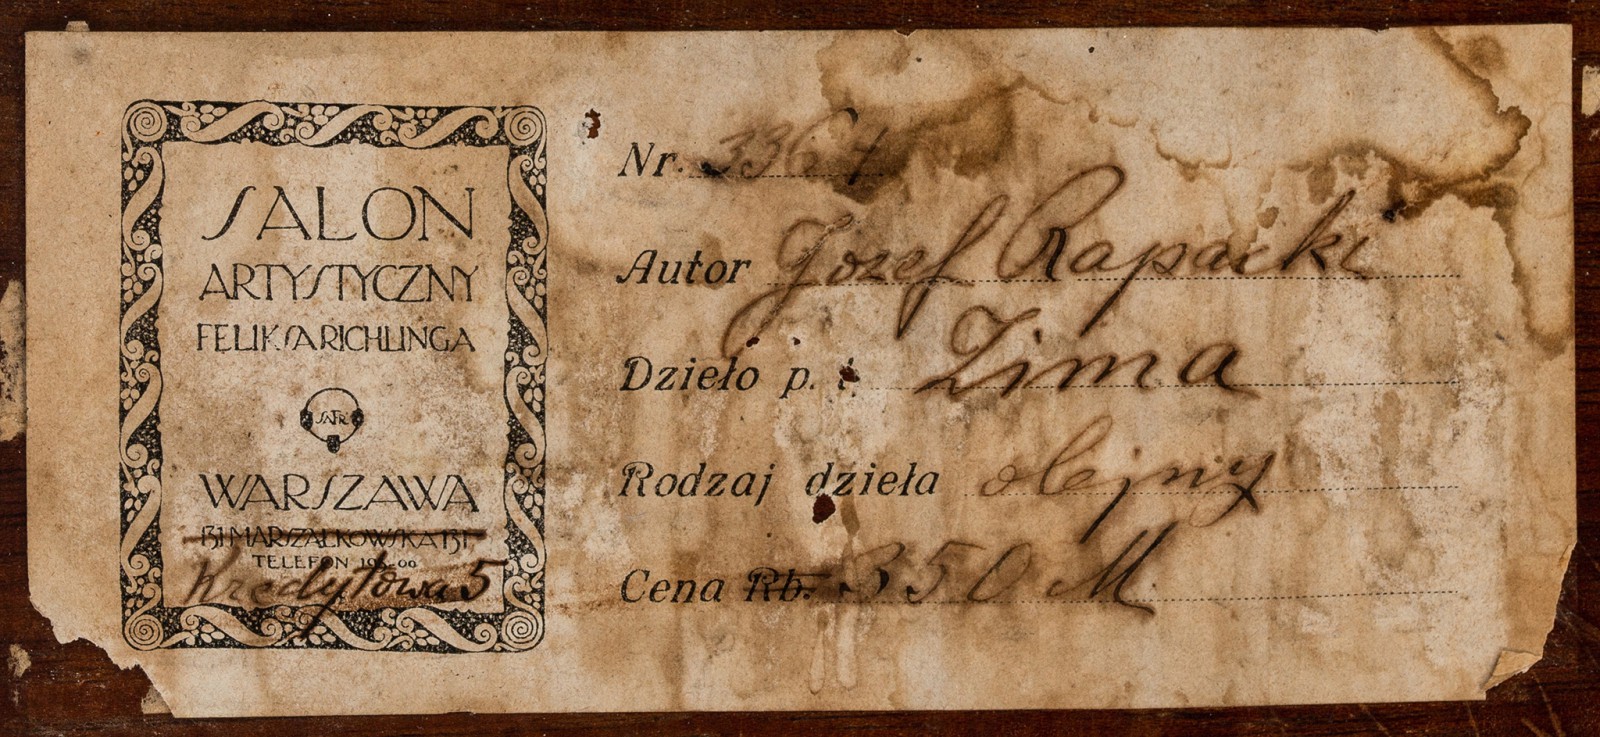 SALON
ARTYSTYCZNY
FELIKSA RICHLINGA
SAFR
WARSZAWA
131 MARSZAŁKOWSKA 131
TELEFON
Kredytowa 5
Nr. 3364
Autor Jozef Rapacki
Dzieło p. t. Zima
Rodzaj dzieła olejny
Cena Rb. 350 M.